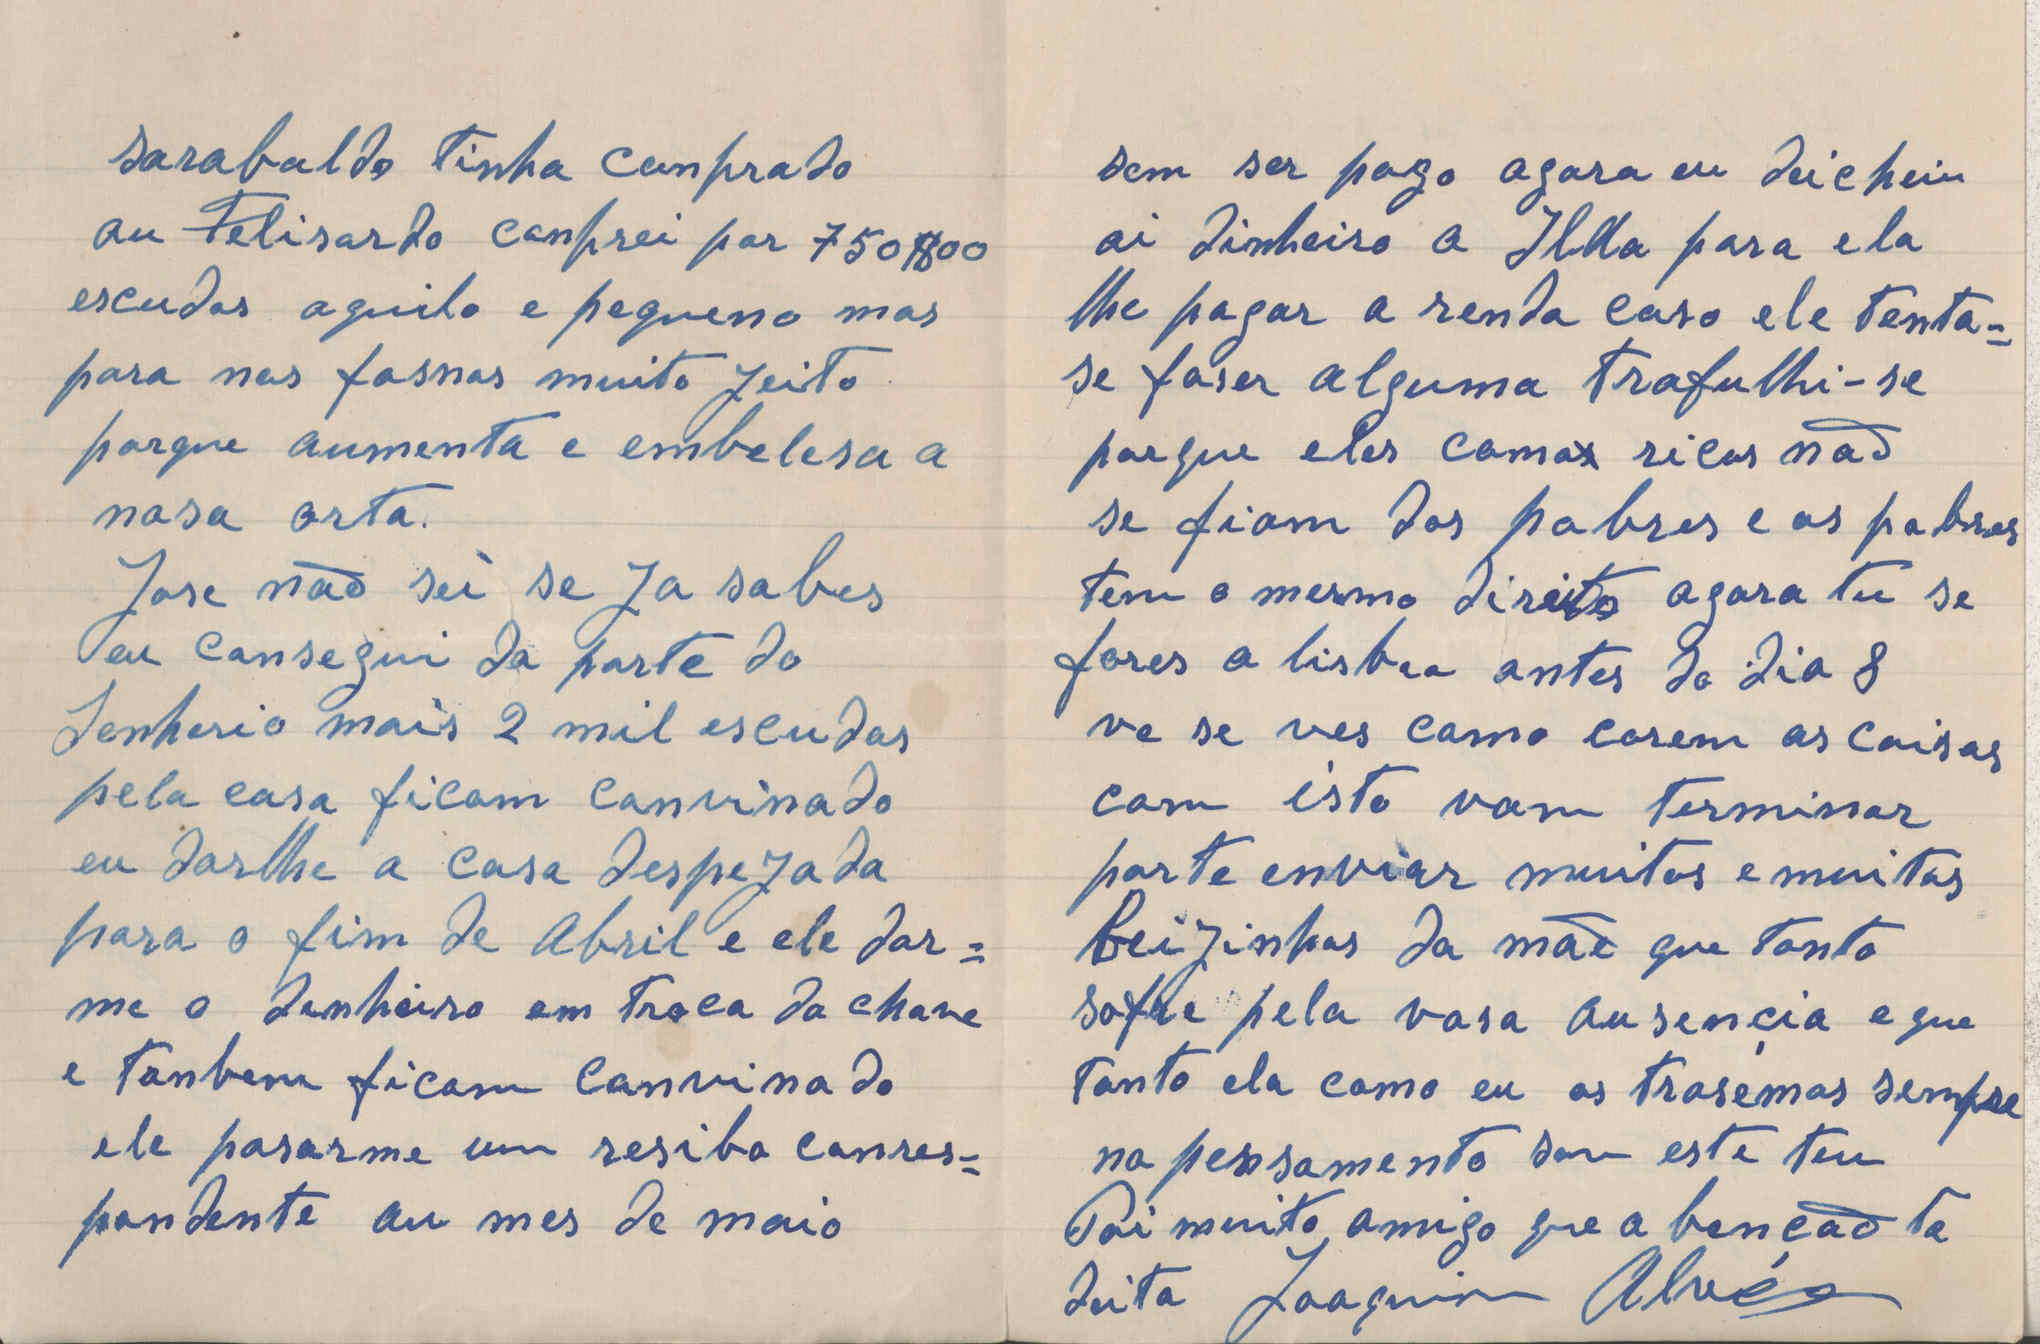 sarabaldo tinha conprado
au Felisardo conprei por 750$00
escudos aquilo e pequeno mas
para nos fasnos muito jeito
porque aumenta e embelesa a
nosa orta.
Jose não sei se ja sabes
eu consegui da parte do
Senhorio mais 2 mil escudos
pela casa ficam convinado
eu darlhe a casa despejada
para o fim de Abril e ele dar=
me o denheiro em troca da chave
e tanbem ficam convinado
ele pasarme um resibo conres=
pondente au mes de maio
sem ser pago agora eu deicheiu
ai dinheiro a Ilda para ela
lhe pagar a renda caso ele tenta=
se faser alguma trafulhi-se
porque eles comos ricos não
se fiam dos pobres e os pobres
tem o mesmo direito agora tu se
fores a lisboa antes do dia 8
ve se ves como corem as coisas
com isto vom terminar
porte enviar muitos e muitos
beijinhos da mãe que tonto
sofre pela vosa ausençia e que
tonto ela como eu os trosémos sempre
no pensamento sou este teu
Pai muito amigo que a bençaõ te
deita Joaquim Alvés